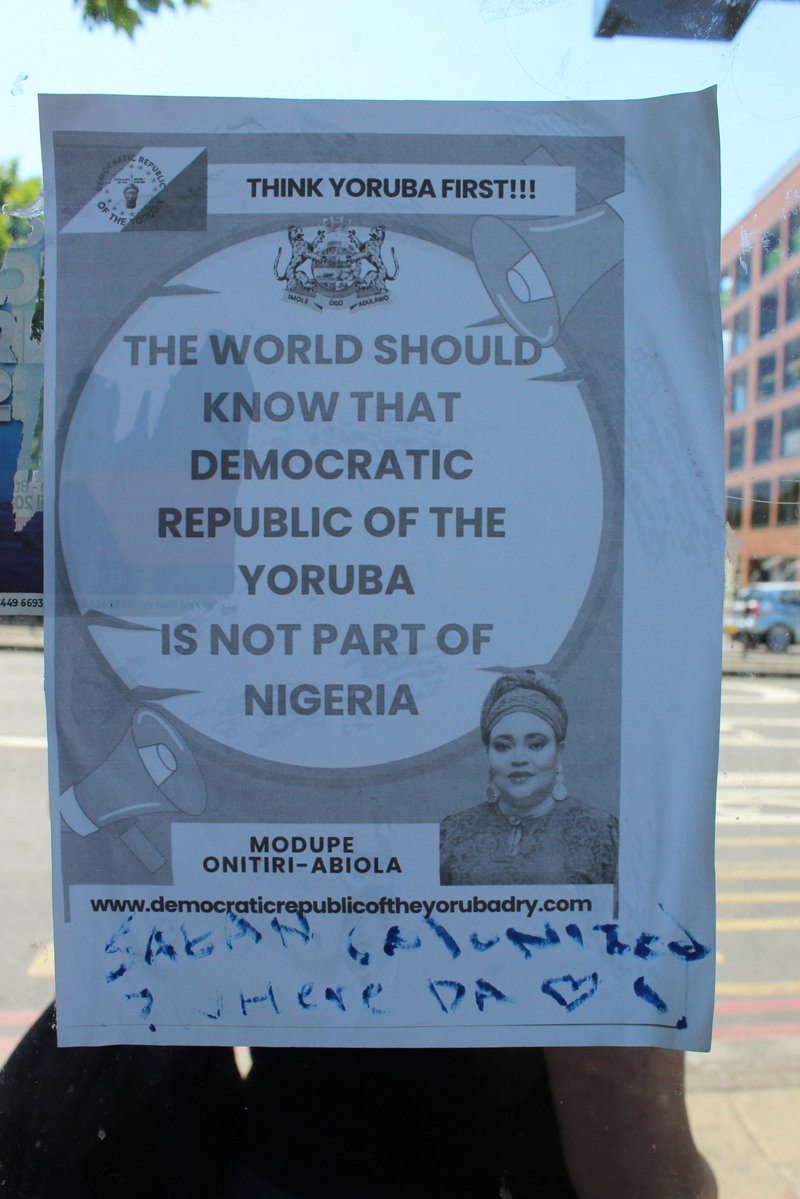 DEMOCRATIC REPUBLIC
OF THE YORUBA
THINK YORUBA FIRST!!!
IMOLE OGO ADULAWO
THE WORLD SHOULD
KNOW THAT
DEMOCRATIC
REPUBLIC OF THE
YORUBA
IS NOT PART OF
NIGERIA
MODUPE
ONITIRI-ABIOLA
www.democraticrepublicoftheyorubadry.com
? WHere DA ♡
449 6693